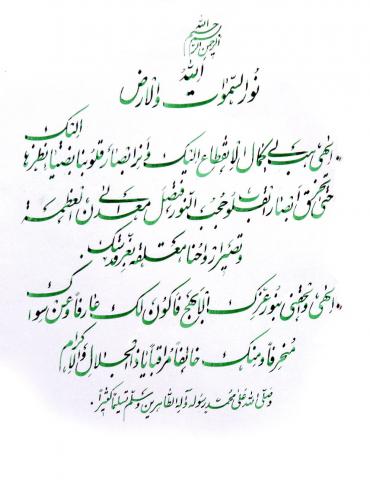 بسم الله الرحمن الرحیم
الله
نور السموات والارض
الهی هب لی کمال الانقطاع الیک وانر ابصار قلوبنا بضیاء نظرها الیک
حتی تخرق ابصار القلوب حجب النور فتصل الی معدن العظمة
وتصیر ارواحنا معلقة بعز قدسک
الهی والحقنی بنور عزک الابهج فاکون لک عارفا وعن سواک
منحرفا ومنک خائفا مراقبا یا ذا الجلال والاکرام
وصلی الله علی محمد رسوله وآله الطاهرین وسلم تسلیما کثیرا